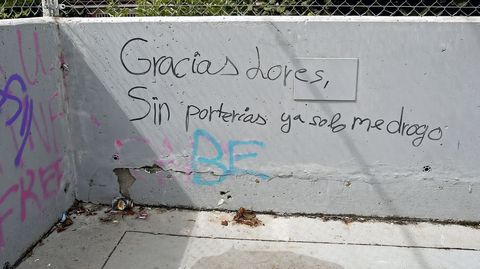 Gracias Lores,
Sin porterías ya solo me drogo.
BE
FREE